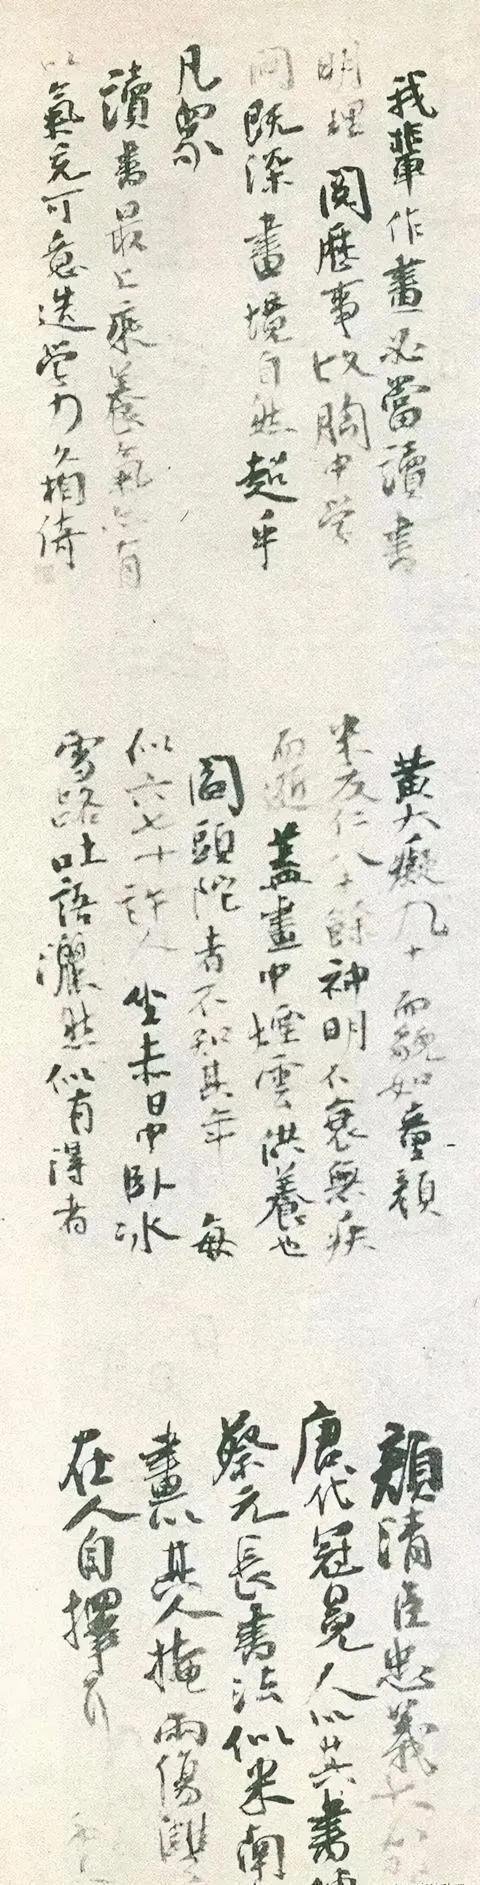 我輩作畫必當讀書
明理閱歷事故胸中學
問既深畫境自然超乎
凡眾
讀書最上乘養氣亦有
以氣充可意造學力久相倚
黃大癡九十而貌如童顏
米友仁八十餘神明不衰無疾
而逝蓋畫中煙雲供養也
閻頭陀者不知其年每
似六七十許人坐赤日中臥冰
雪路吐語灑然似有得者
顏清臣忠義大節
唐代冠冕人以其書傳
蔡元長書法似米南
畫以其人掩兩傷雙
在人自擇